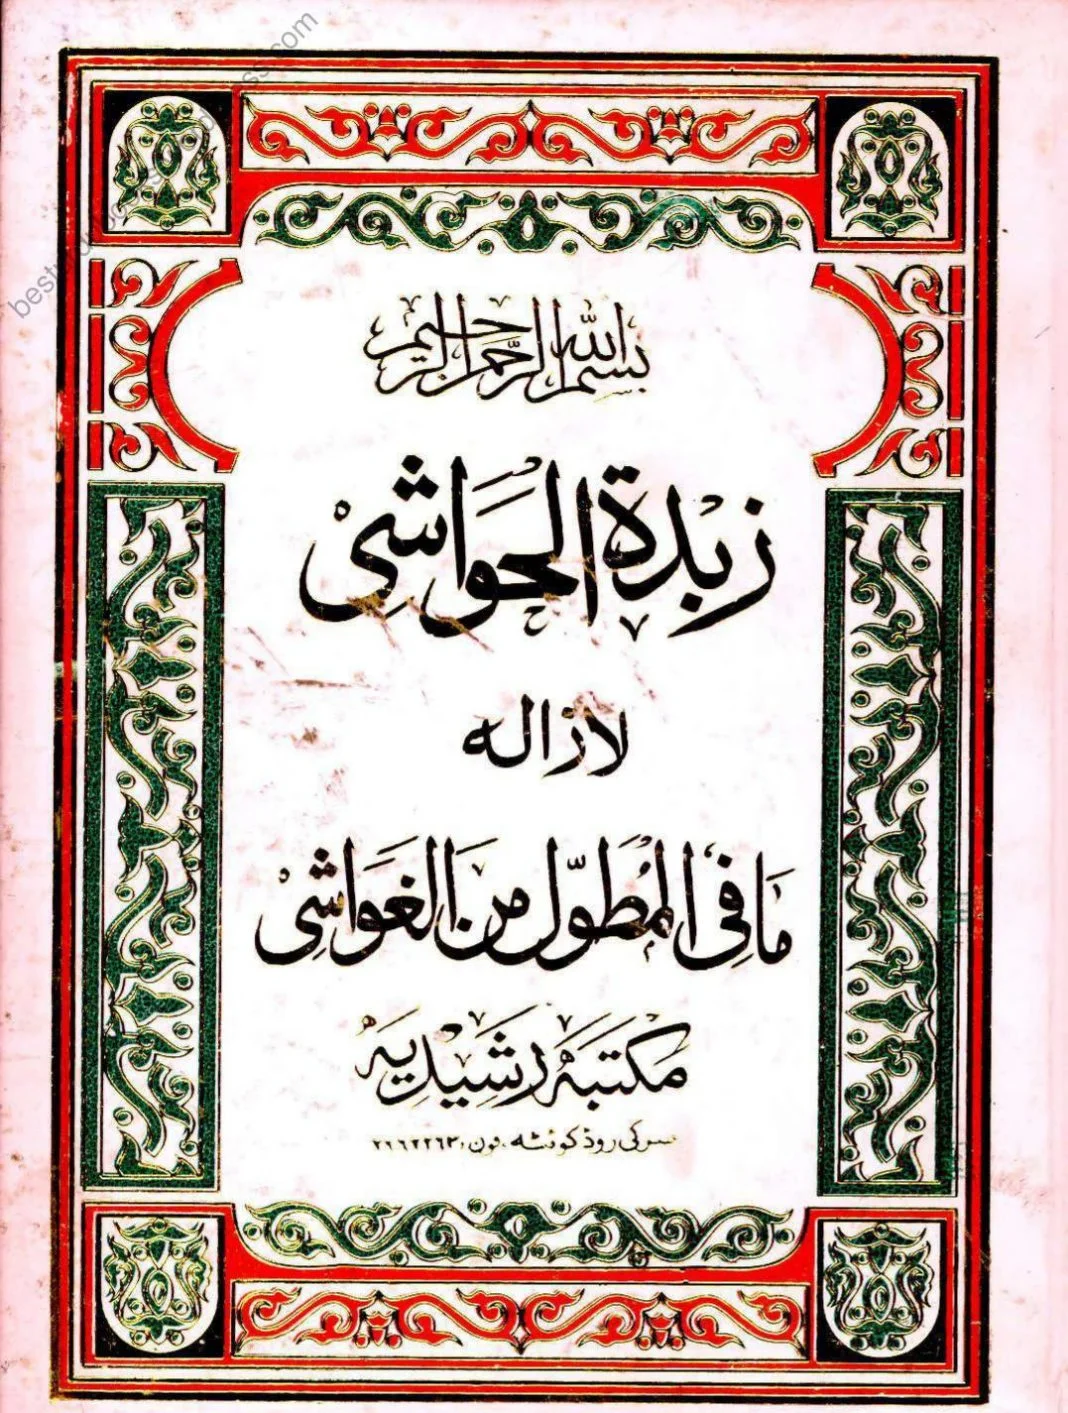 بسم الله الرحمن الرحيم
زُبْدَةُ الحَوَاشِىْ
لازاله
مَا فِى المُطَوَّل مِنَ الغَوَاشِىْ
مکتبہ رشیدیہ
سرکی روڈ کوئٹہ ۔فون: ۲۶۶۲۲۶۳